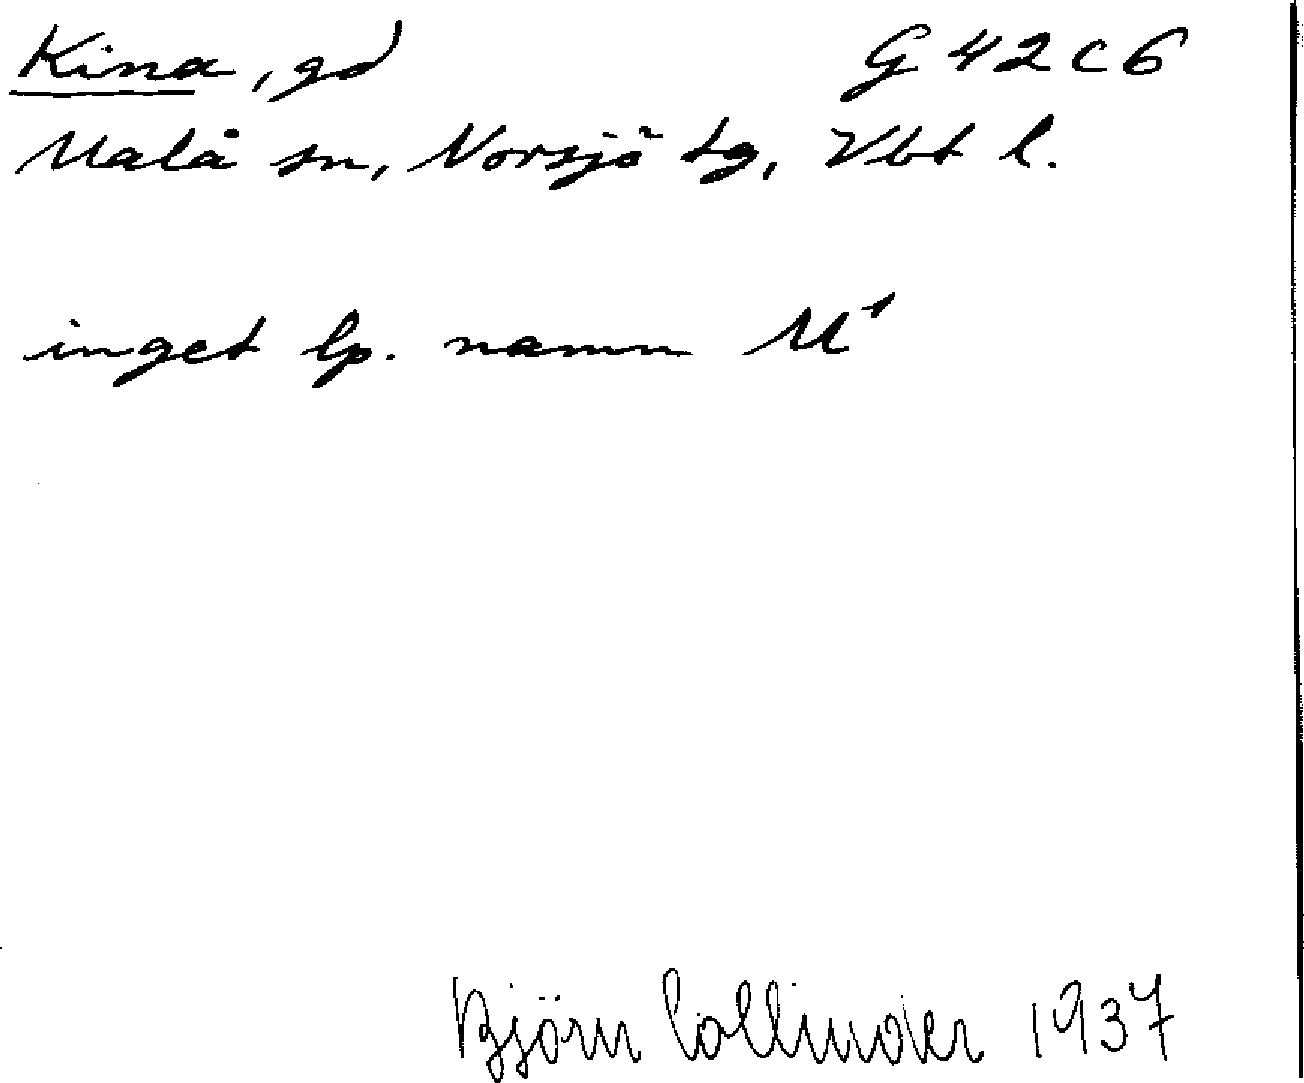 Kina, gd G 42 c 6
Malå sn, Norsjö tg, Vbt l.
inget lp. namn M¹
Björn Collinder 1937